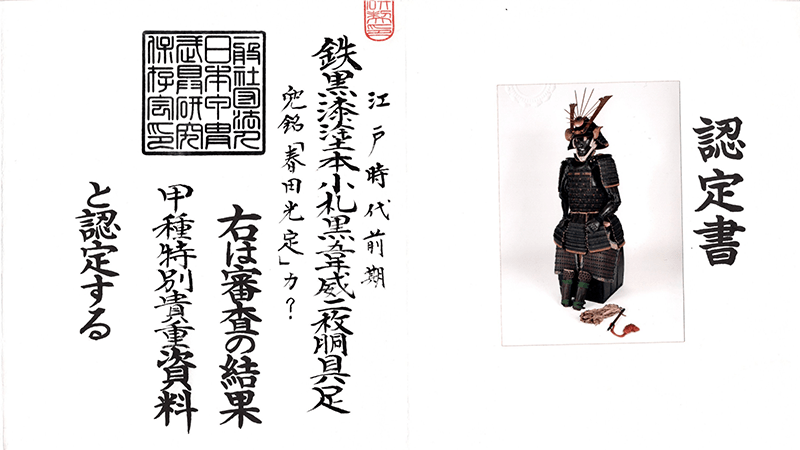 認定書
江戸時代前期
鉄黒漆塗本小札黒韋威二枚胴具足
兜銘「春田光定」カ？
右は審査の結果
甲種特別貴重資料
と認定する
一般社団法人
日本甲冑
武具研究
保存会印